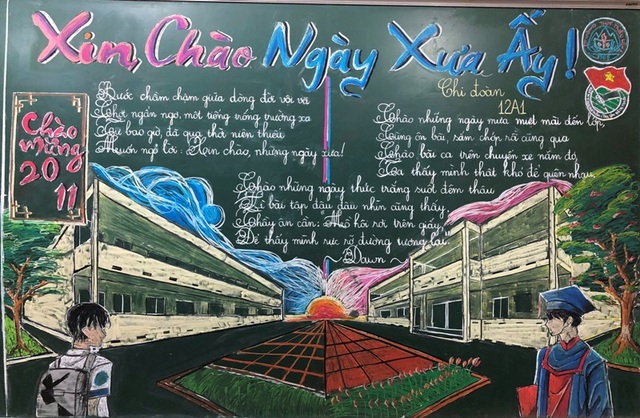 Xin Chào Ngày Xưa Ấy!
Chi đoàn
12A1
Chào
mừng
20
11
Bước chầm chậm giữa dòng đời vội vã
Chợt ngân ngơ, một tiếng trống trường xa
Từ bao giờ, đã qua, thời niên thiếu
Muốn ngỏ lời: Xin chào, những ngày xưa!
Chào những ngày mưa miệt mài đến lớp,
Cùng ôn bài, sấm chớp rồi cũng qua
Chào bài ca trên chuyến xe năm đó,
Ta thấy mình thật khó để quên nhau.
Chào những ngày thức trắng suốt đêm thâu
Vì bài tập dầu dầu nhìn cũng thấy
Thầy ân cần: Mồ hôi rơi trên giấy,
Để thấy mình rực rỡ đường tương lai.
Dawn